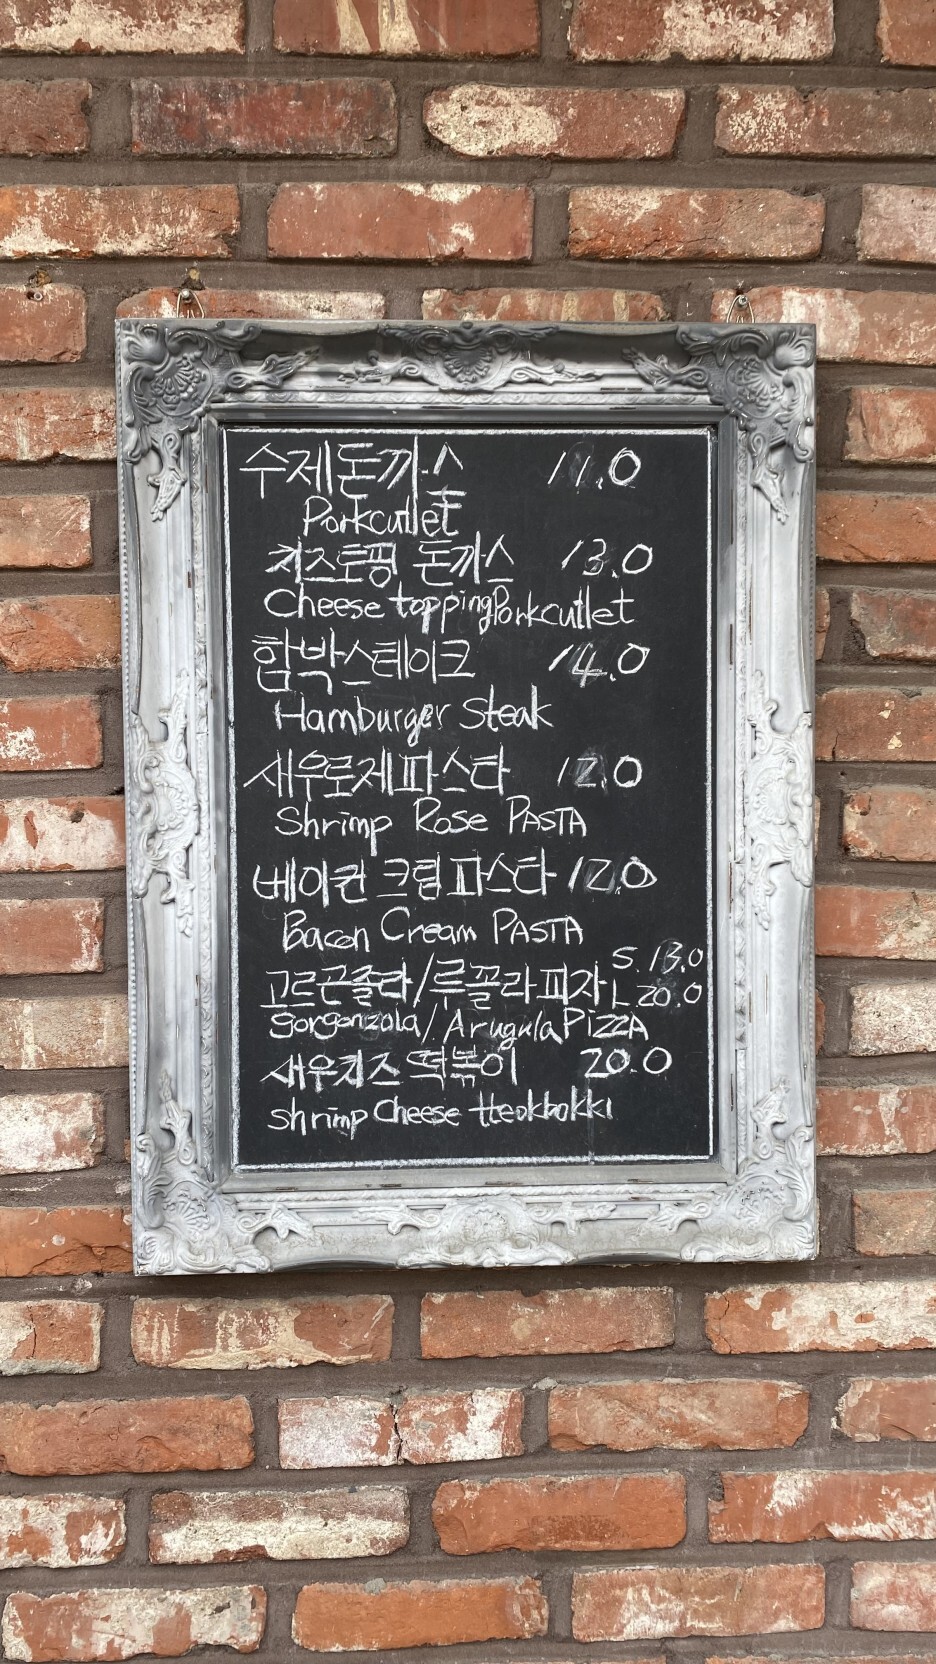 수제돈까스 11.0
Porkcutlet
치즈토핑 돈까스 13.0
Cheese topping Porkcutlet
함박스테이크 14.0
Hamburger Steak
새우로제파스타 12.0
Shrimp Rose PASTA
베이컨 크림파스타 12.0
Bacon Cream PASTA
고르곤졸라/루꼴라피자 S. 13.0
L 20.0
gorgonzola/Arugula PIZZA
새우치즈 떡볶이 20.0
shrimp Cheese tteokbokki